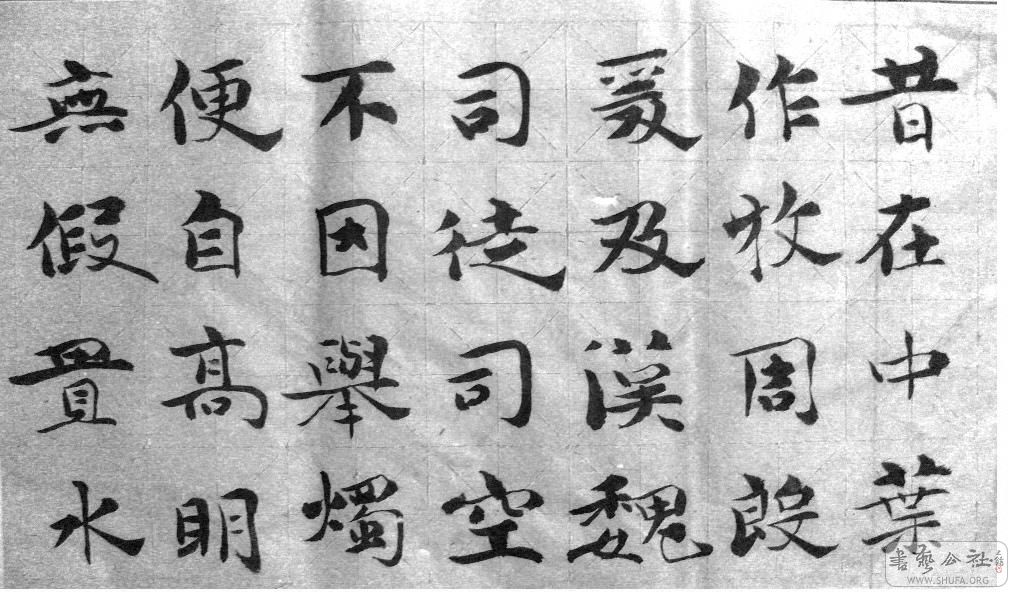 昔在中葉
作牧周殷
爰及漢魏
司徒司空
不因舉燭
便自高明
無假置水
書藝公社
WWW.SHUFA.ORG